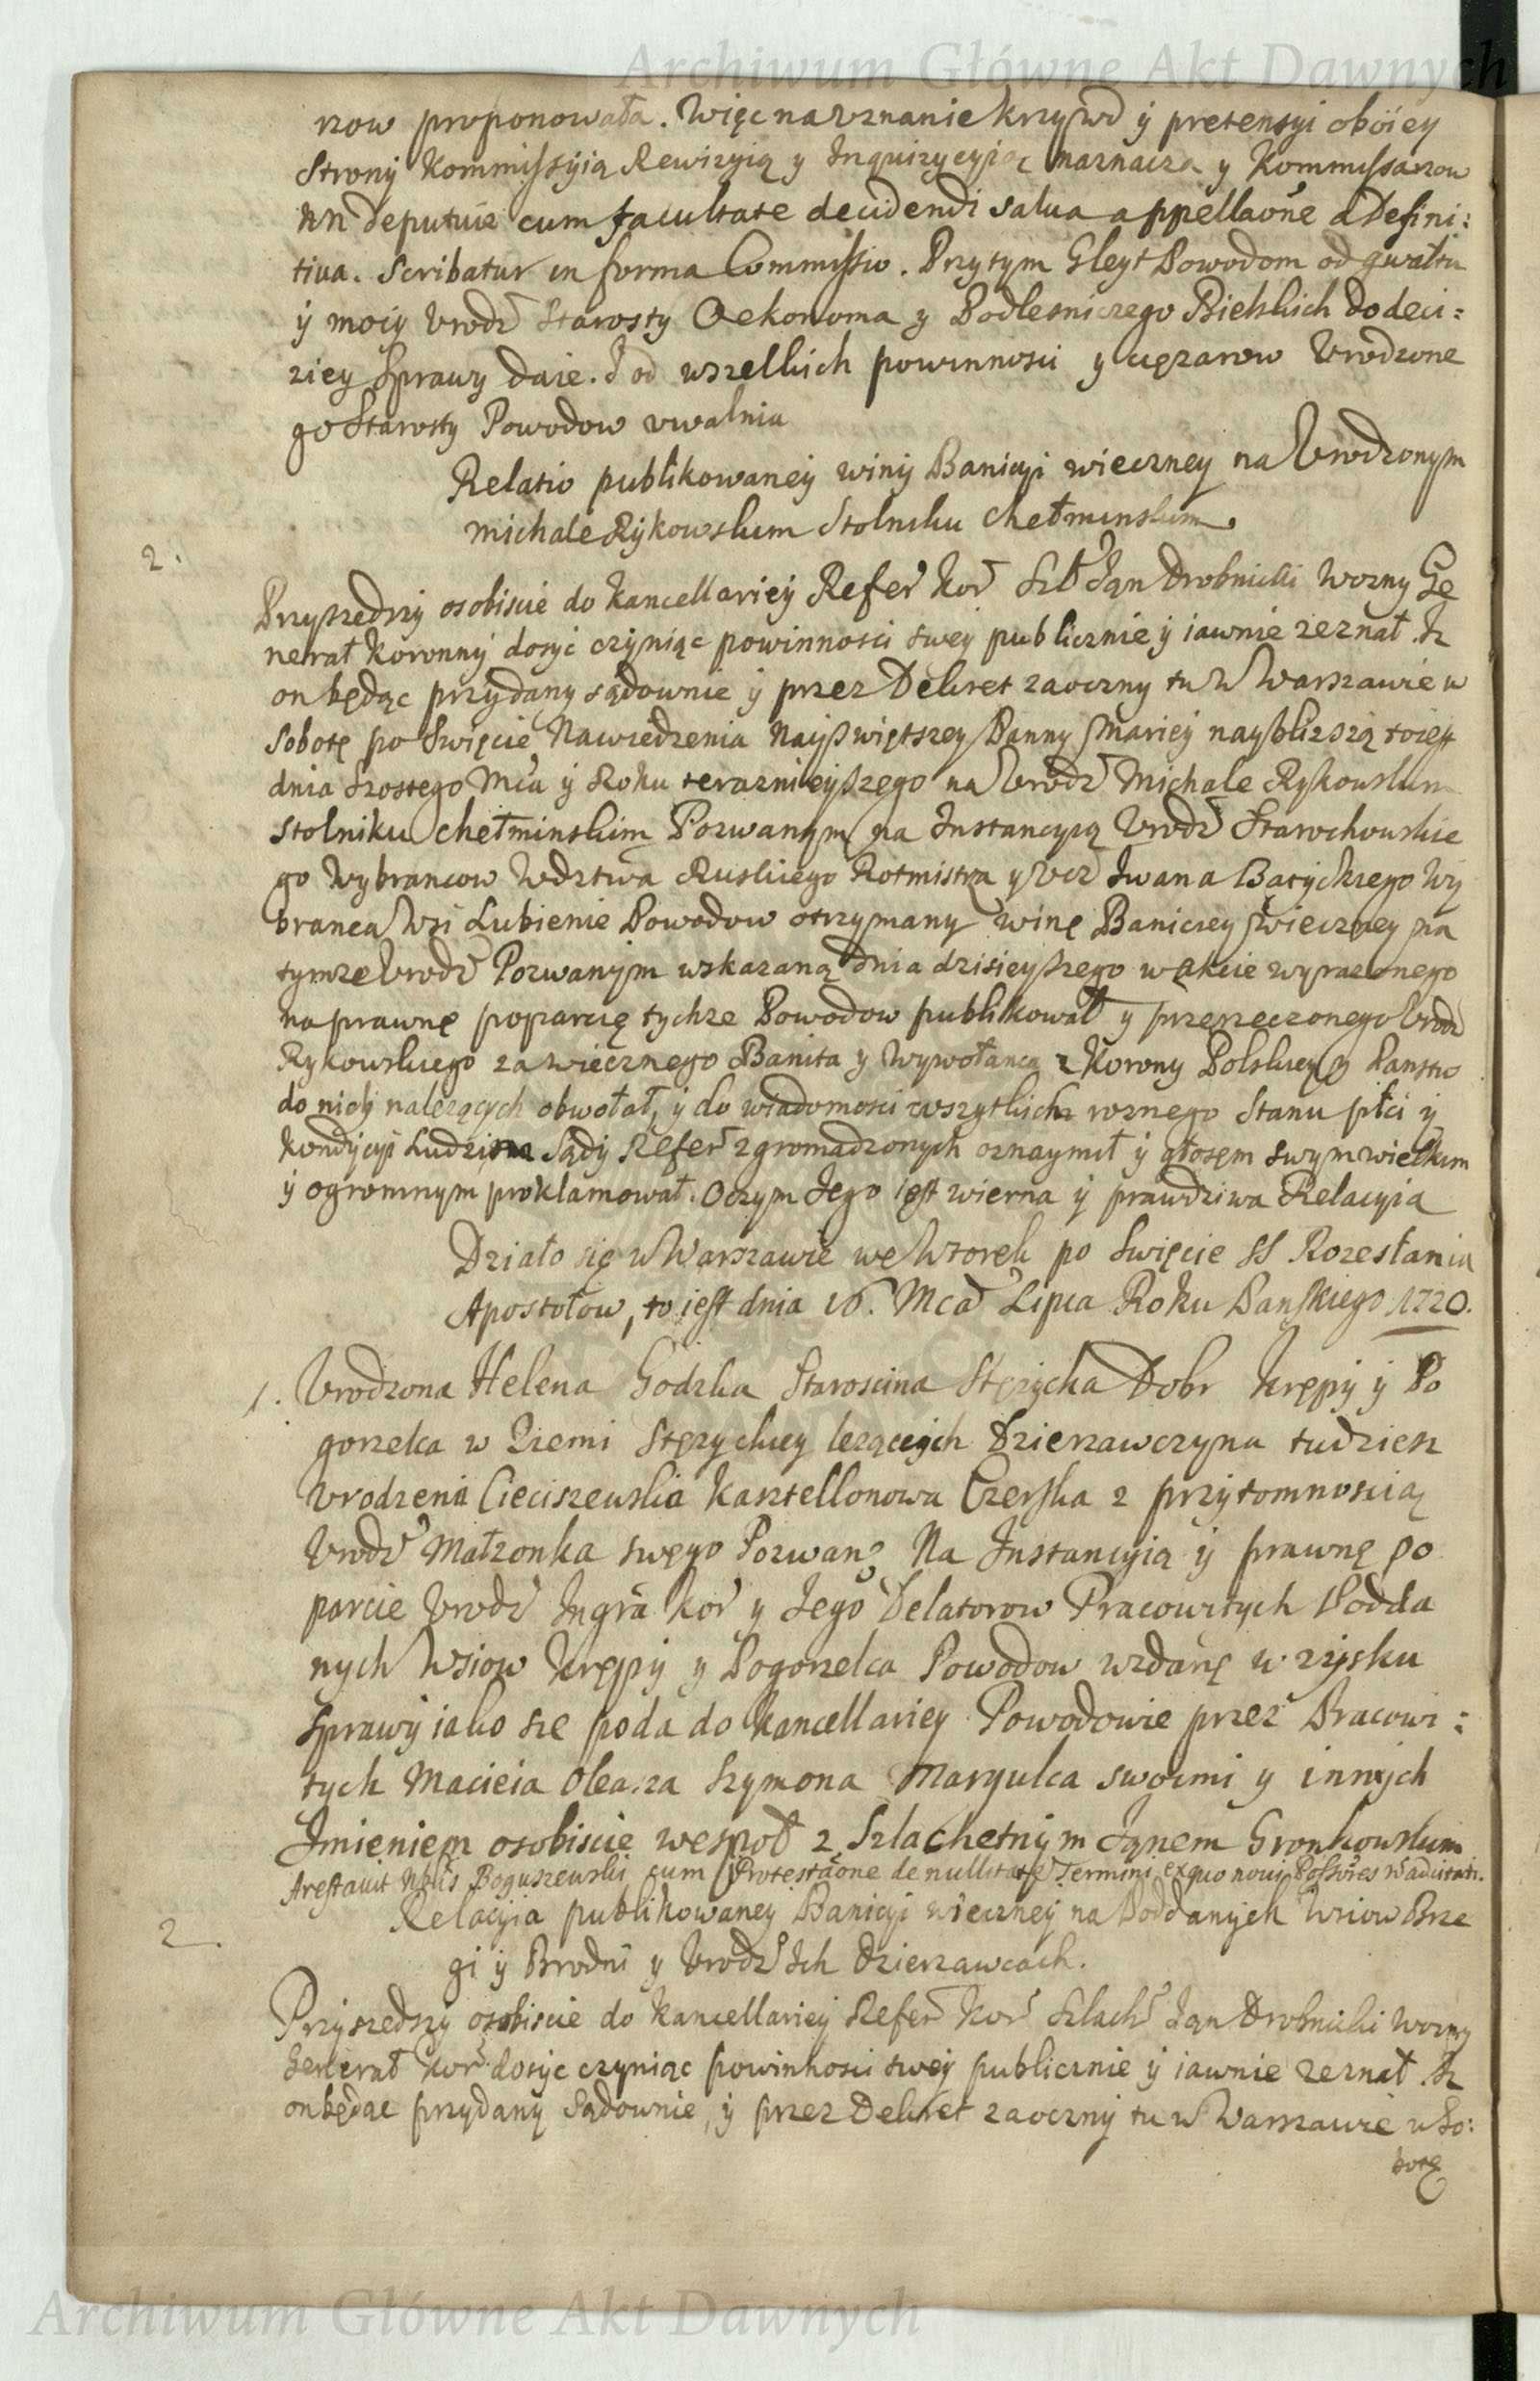 Archiwum Główne Akt Dawnych
rzow proponowała. Więc na uznanie krzywd ÿ pretensyi oboiey
Strony Kommissyią Rewizyią y Inquizycyią naznacza y Kommissarzow
NN deputuie cum facultate decidendi salua appellaõne a Defini:
tiua. Scribatur in forma Commissio. Przytym Gleyt Powodom od gwałtu
ÿ mocy Urodz Starosty Oekonoma y Podlesniczego Bielskich do deci:
ziey Sprawy daie. I od wszelkich powinnosci y cięzarow Urodzone
go Starosty Powodow uwalnia
Relatio publikowaney winy Banicyi wieczney na Urodzonym
Michale Rÿkowskim Stolniku Chełminskim.
2.
Przyszedszy osobiscie do Kancellariey Refer Kor Szl Jąn Drobnicki Wozny Ge
nerał Koronny dosyć czyniąc powinnosci swey publicznie ÿ iawnie zeznał. Iz
on będąc przydany sądownie ÿ przez Dekret zaoczny tu w Warszawie w
Sobotę po Swięcie Nawiedzenia Nayswiętszey Panny Mariey nayblizszą to iest
dnia szostego Mca ÿ Roku teraznieyszego na Urodz Michale Rykowskim
Stolniku Chełminskim Pozwanym na Instancyią Urodz Starochowskie
go Wybrancow Wdztwa Ruskiego Rotmistrza y Ucz Iwana Baryckiego Wy
branca Wsi Lubienie Powodow otrzymany winę Baniciey wieczney na
tymze Urodz Pozwanym wskazaną dnia dzisieyszego w akcie wyrazonego
na prawnę poparcię tychze Powodow publikował y przerzeczonego Urodz
Rykowskiego za wiecznego Banita y Wywołanca z Korony Polskiey y Panstw
do niey nalezących obwołał, ÿ do wiadomosci wszytkich roznego Stanu płci ÿ
kondycyi Ludzi Sądy Refer zgromadzonych oznaymił ÿ głosem swym wielkim
ÿ ogromnym proklamował. O czym Jego iest wierna ÿ prawdziwa Relacyia
Działo się w Warszawie we Wtorek po Swięcie SS Rozesłania
Apostołow, to iest dnia 16. Mca Lipca Roku Panskiego 1720.
1. Urodzona Helena Godzka Staroscina Stęzycka Dobr Krępy ÿ Po
gorzelca w Ziemi Stęzyckiey lezących Dzierzawczyna tudziesz
Urodzena Cieciszewska Kasztellonowa Czerska z przytomnoscią
Urodz Małzonka swego Pozwane Na Instancyią ÿ prawnę po
parcie Urodz Ingra Kor y Jego Delatorow Pracowitych Podda
nych Wsiow Kręppy y Pogorzelca Powodow wzdanę w zysku
Sprawy iako sie poda do Kancellariey Powodowie przez Pracowi:
tych Macieia Olearza Szymona Margulca swoimi y innych
Imieniem osobiscie wespoł z Szlachetnym Jąnem Gronkowskim
Arestauit Nblis Boguszewski cum Protestaõne de nullitate Termini exquo noui Possores N adcitati.
2. Relacyia publikowaney Banicyi wieczney na Poddanych Wsiow Brze
gi y Brodni y Urodz Ich Dzierzawcach.
Przyszedszy osobiscie do Kancellariey Refer Kor Szlach Jąn Drobnicki Wozny
Generał Kor dosyc czyniąc powinnosci swey publicznie ÿ iawnie zeznał. Iz
on będąc przydany Sądownie, ÿ przez Dekret zaoczny tu w Warszawie w So:
botę
Archiwum Główne Akt Dawnych